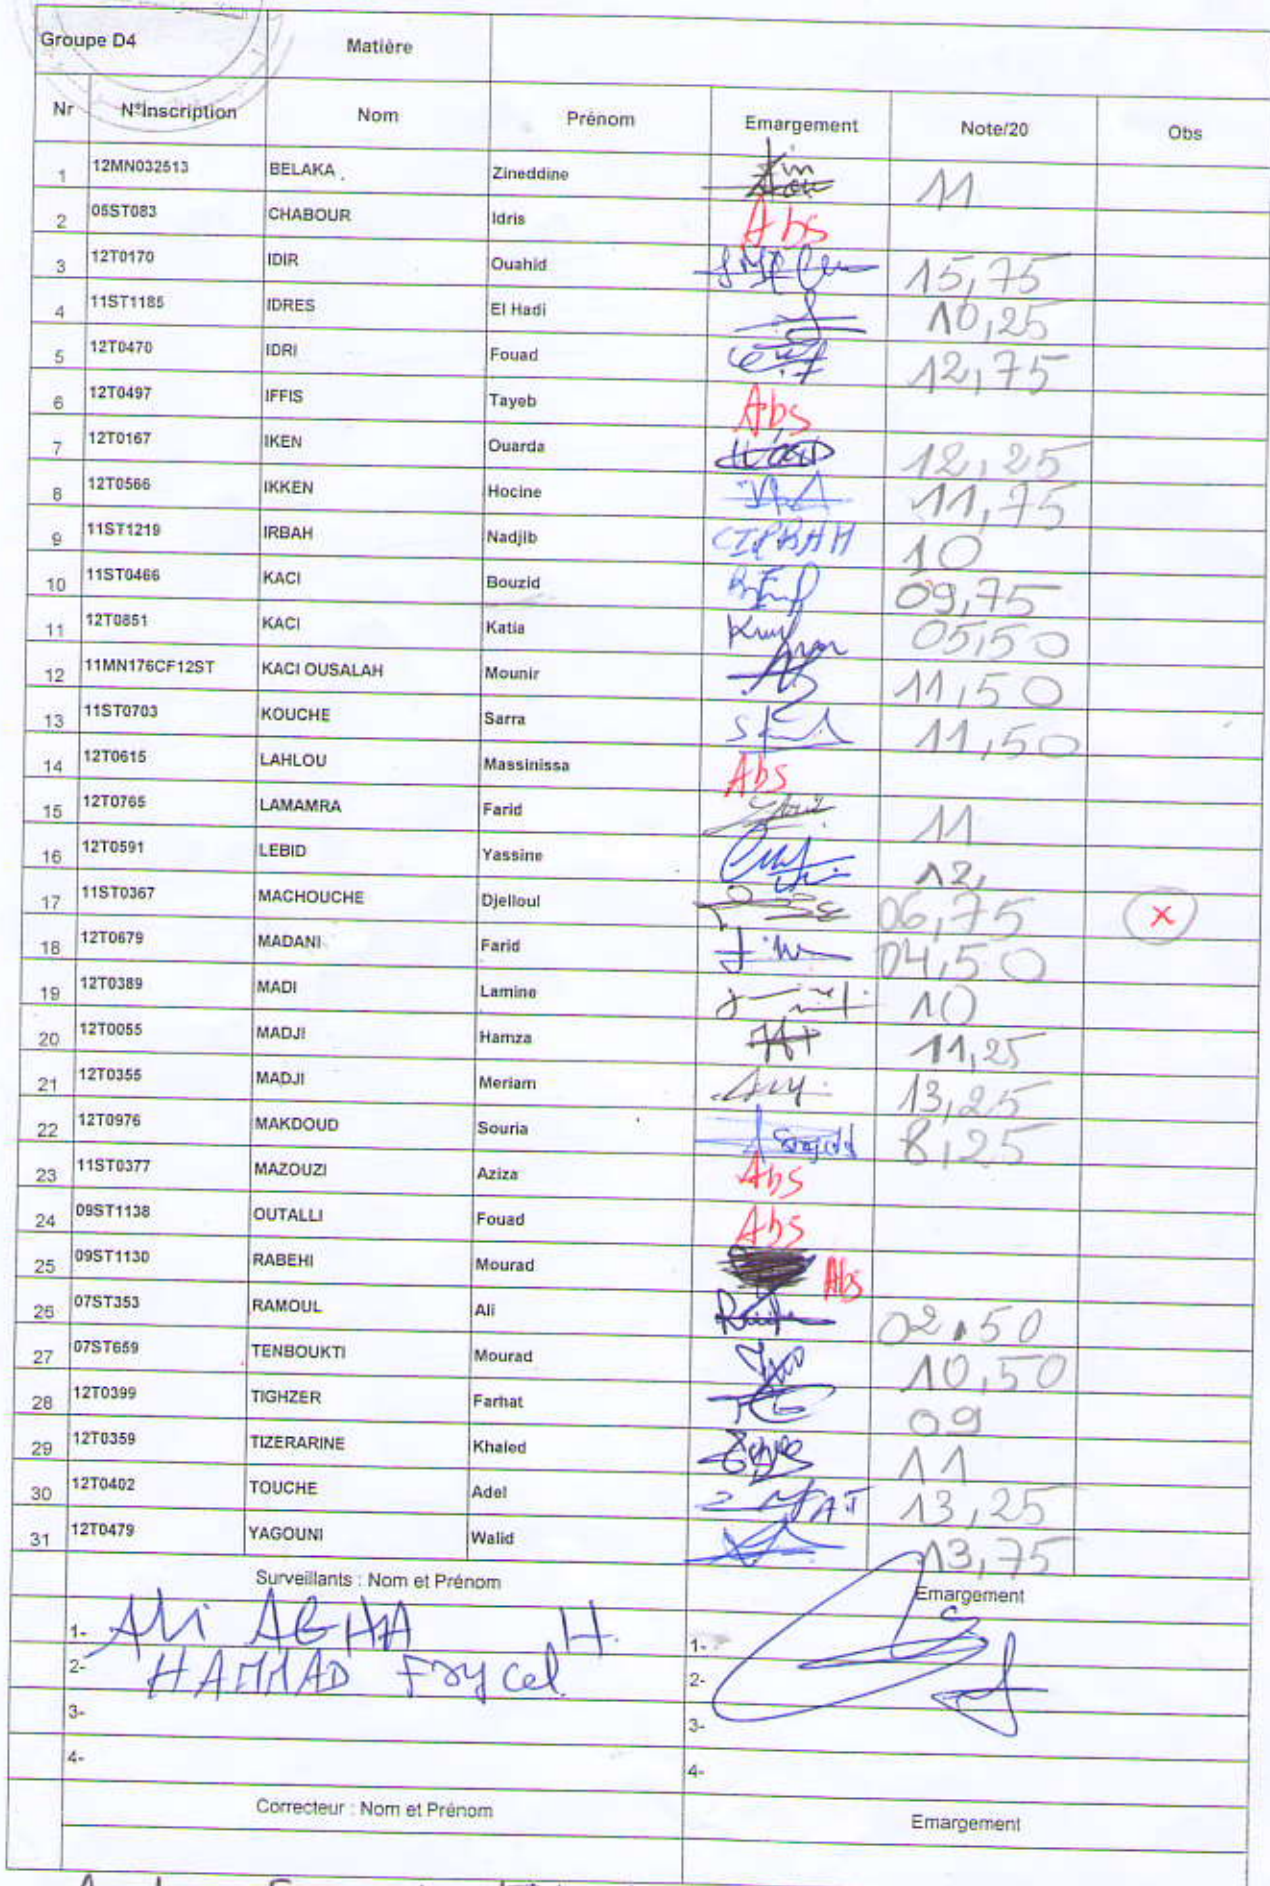 Groupe D4 Matière
Nr N°Inscription Nom Prénom Emargement Note/20 Obs
1 12MN032513 BELAKA Zineddine 11
2 05ST083 CHABOUR Idris Abs
3 12T0170 IDIR Ouahid 15,75
4 11ST1185 IDRES El Hadi 10,25
5 12T0470 IDRI Fouad 12,75
6 12T0497 IFFIS Tayeb Abs
7 12T0167 IKEN Ouarda 12,25
8 12T0566 IKKEN Hocine 11,75
9 11ST1219 IRBAH Nadjib 10
10 11ST0466 KACI Bouzid 09,75
11 12T0851 KACI Katia 05,50
12 11MN176CF12ST KACI OUSALAH Mounir 11,50
13 11ST0703 KOUCHE Sarra 11,50
14 12T0615 LAHLOU Massinissa Abs
15 12T0765 LAMAMRA Farid 11
16 12T0591 LEBID Yassine 12,
17 11ST0367 MACHOUCHE Djelloul 06,75 X
18 12T0679 MADANI Farid 04,50
19 12T0389 MADI Lamine 10
20 12T0055 MADJI Hamza 11,25
21 12T0355 MADJI Meriam 13,25
22 12T0976 MAKDOUD Souria 8,25
23 11ST0377 MAZOUZI Aziza Abs
24 09ST1138 OUTALLI Fouad Abs
25 09ST1130 RABEHI Mourad Abs
26 07ST353 RAMOUL Ali 02.50
27 07ST659 TENBOUKTI Mourad 10,50
28 12T0399 TIGHZER Farhat 09
29 12T0359 TIZERARINE Khaled 11
30 12T0402 TOUCHE Adel 13,25
31 12T0479 YAGOUNI Walid 13,75
Surveillants : Nom et Prénom Emargement
1- Ali AGHA H. 1-
2- HAMMAD Faycel 2-
3- 3-
4- 4-
Correcteur : Nom et Prénom Emargement